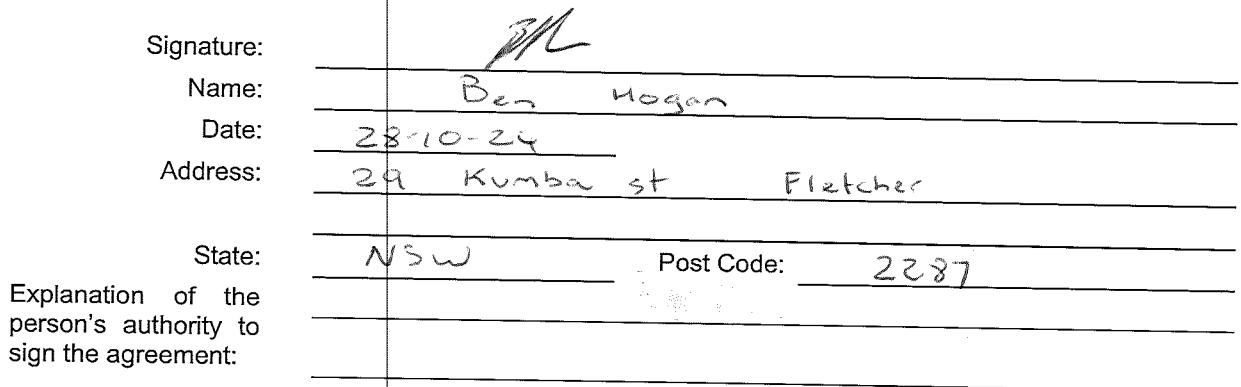 Signature:
Name: Ben Hogan
Date: 28-10-24
Address: 29 Kumba st Fletcher
State: NSW Post Code: 2287
Explanation of the
person's authority to
sign the agreement: